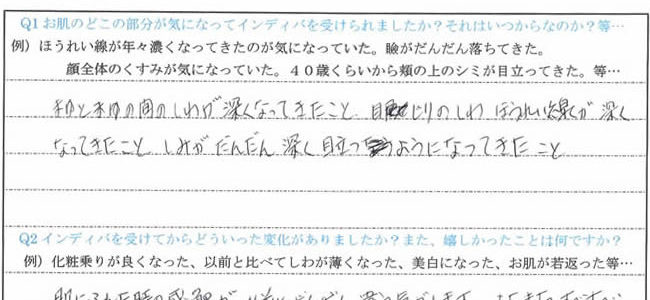 Q1お肌のどこの部分が気になってインディバを受けられましたか？それはいつからなのか？等…
例）ほうれい線が年々濃くなってきたのが気になっていた。瞼がだんだん落ちてきた。
顔全体のくすみが気になっていた。４０歳くらいから頬の上のシミが目立ってきた。等…
の間のしわが深くなってきたこと 目じりのしわ ほうれい線が深く
なってきたこと しみがだんだん深く目立つようになってきたこと
Q2インディバを受けてからどういった変化がありましたか？また、嬉しかったことは何ですか？
例）化粧乗りが良くなった、以前と比べてしわが薄くなった、美白になった、お肌が若返った等…